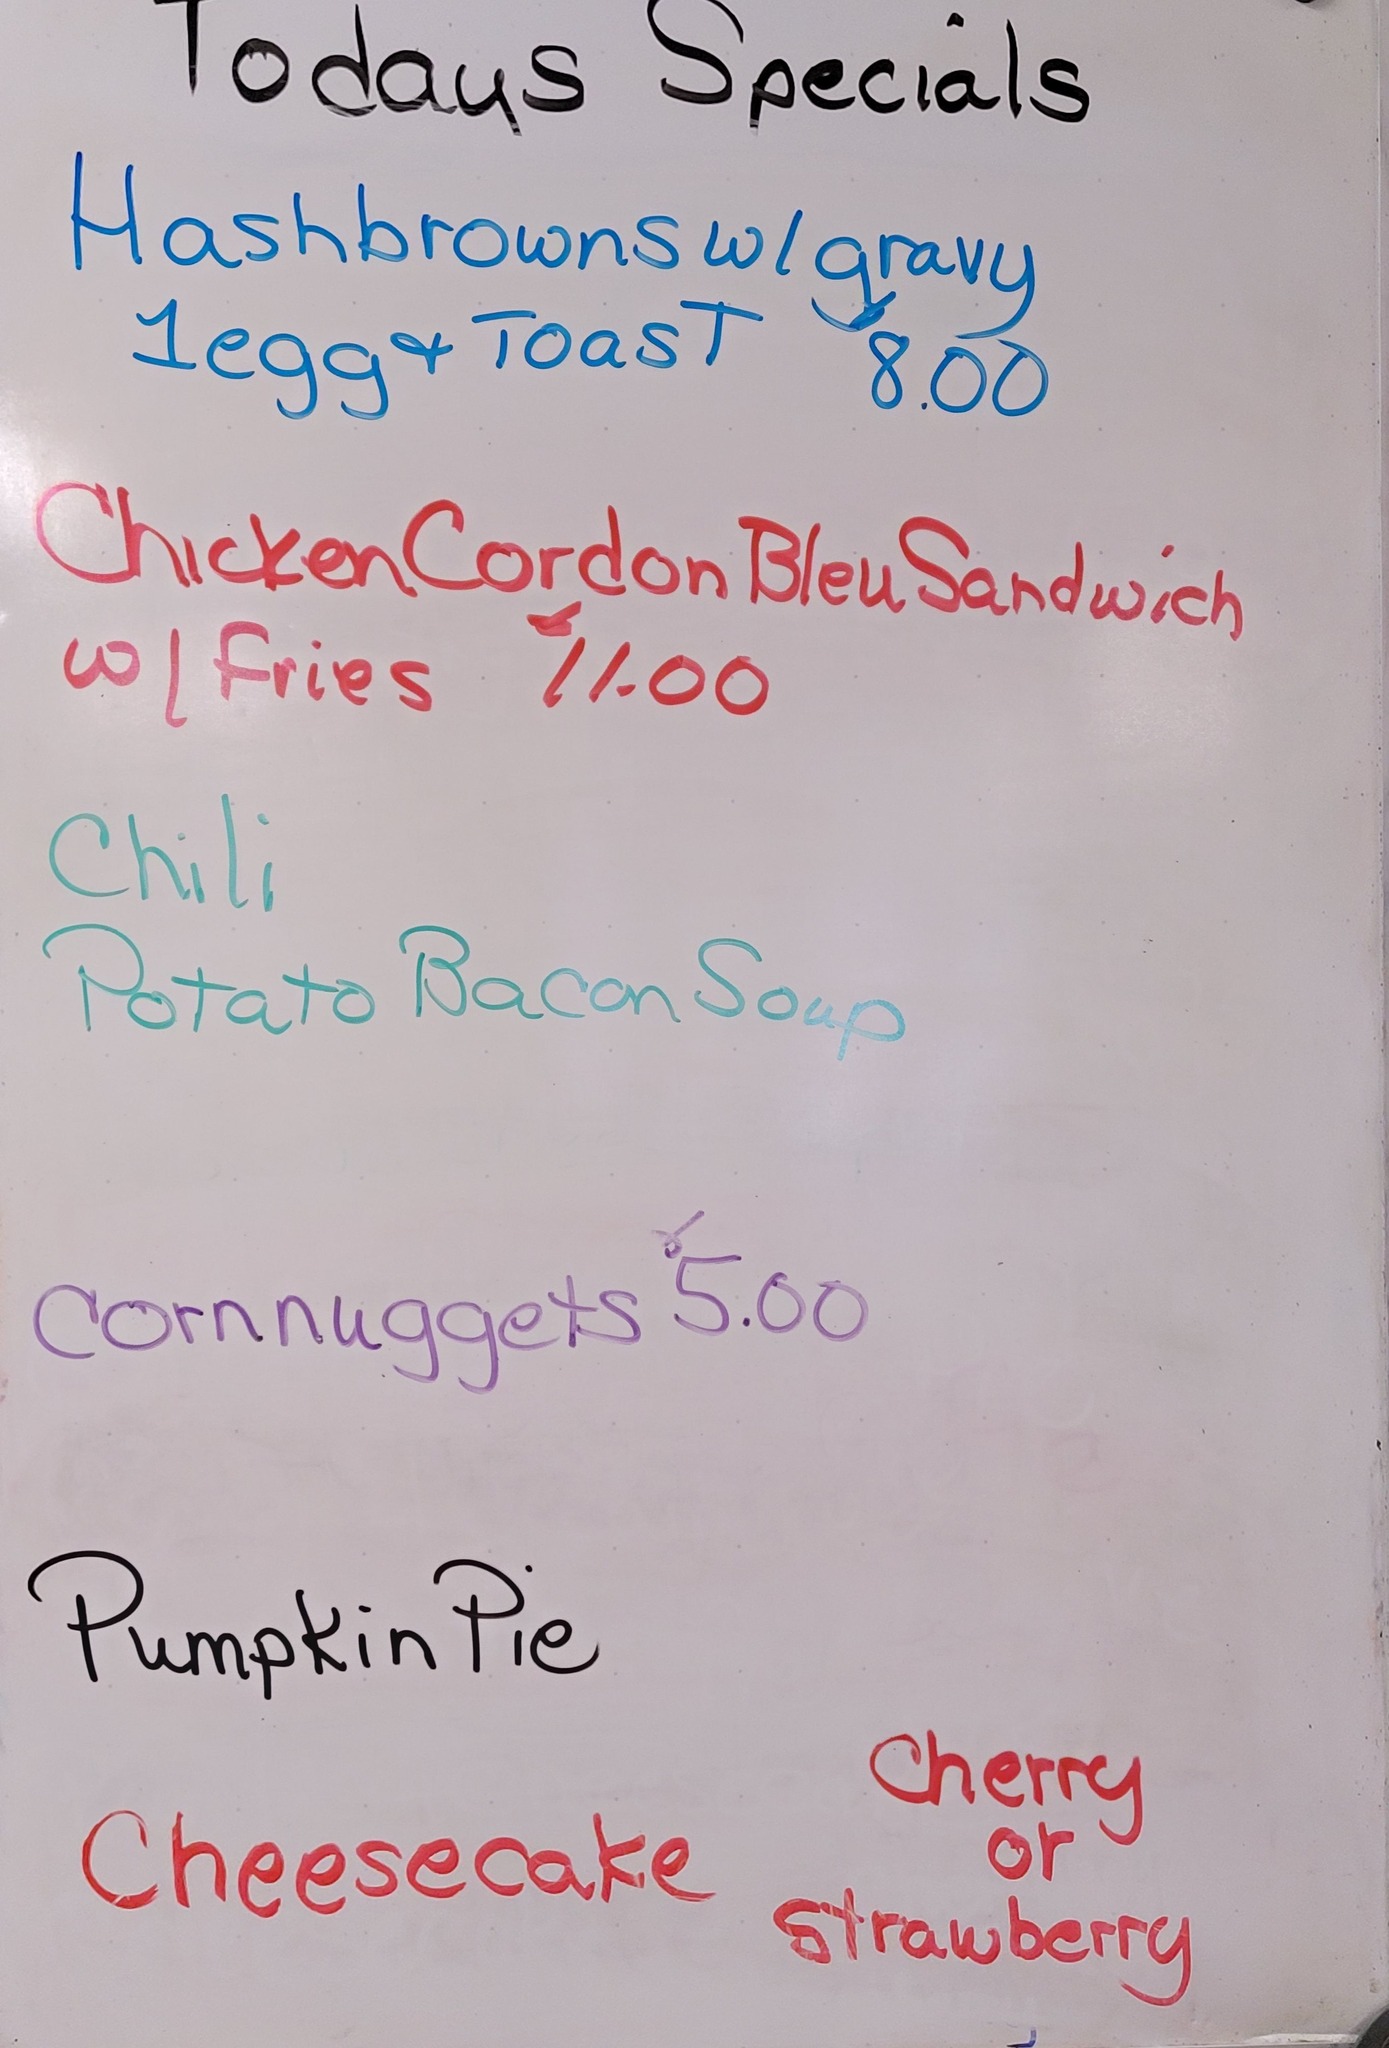 Todays Specials
Hashbrowns w/gravy
1egg & Toast $8.00
Chicken Cordon Bleu Sandwich
w/ Fries $11.00
Chili
Potato Bacon Soup
Cornnuggets $5.00
Pumpkin Pie
Cherry
or
Cheesecake
strawberry